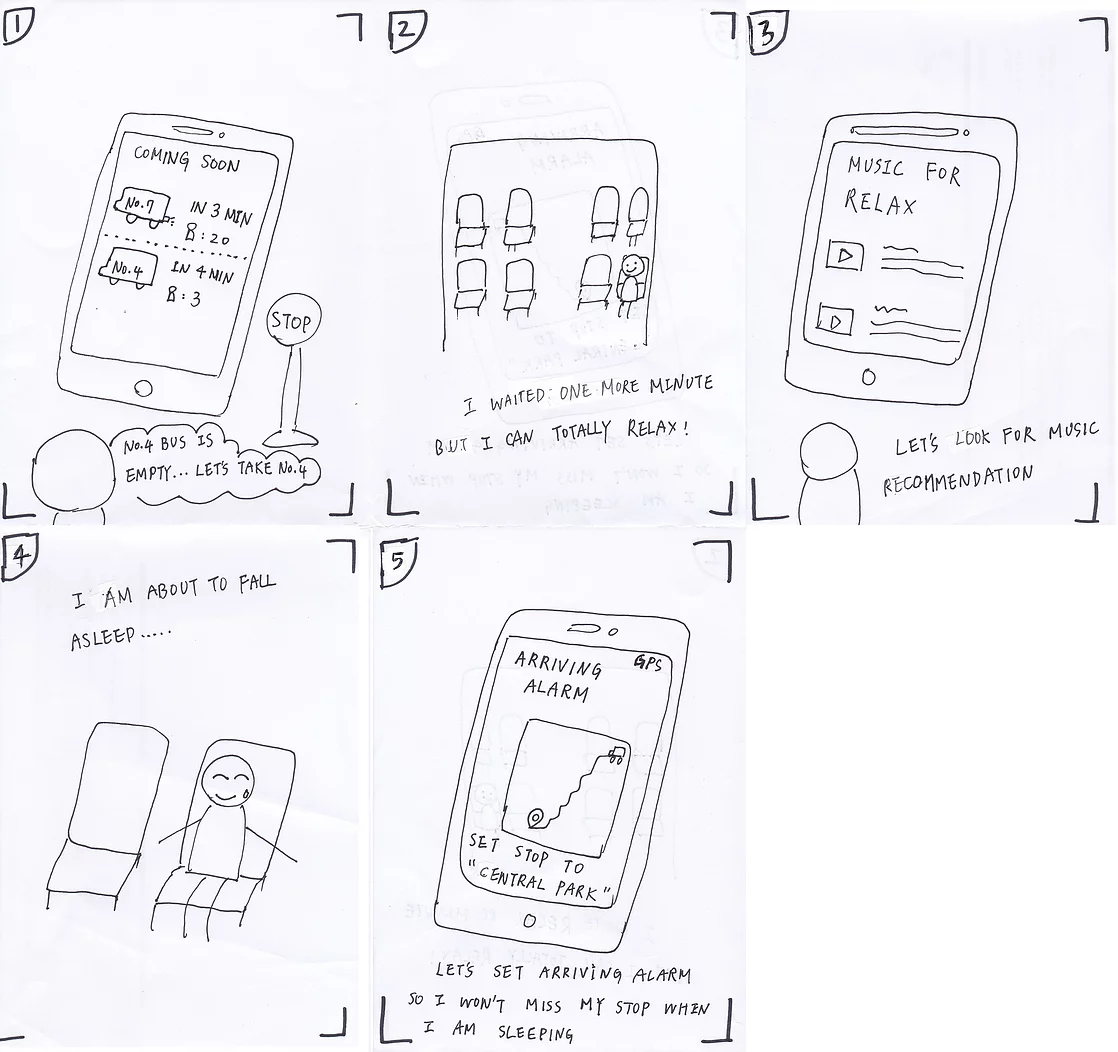 1
COMING SOON
No.7
IN 3 MIN
8:20
No.4
IN 4 MIN
8:3
STOP
No.4 BUS IS
EMPTY... LET'S TAKE No.4
2
I WAITED ONE MORE MINUTE
BUT I CAN TOTALLY RELAX!
3
MUSIC FOR
RELAX
LET'S LOOK FOR MUSIC
RECOMMENDATION
4
I AM ABOUT TO FALL
ASLEEP.....
5
ARRIVING
ALARM
GPS
SET STOP TO
"CENTRAL PARK"
LET'S SET ARRIVING ALARM
SO I WON'T MISS MY STOP WHEN
I AM SLEEPING